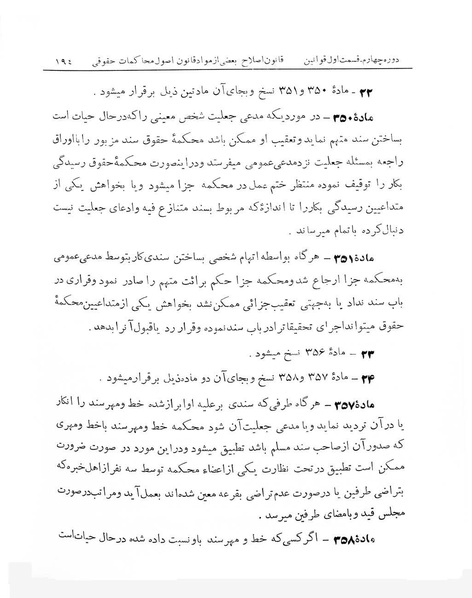 دوره چهارم-قسمت اول قوانین قانون اصلاح بعضی از مواد قانون اصول محاکمات حقوقی ۱۹٤
۲۲ - مادهٔ ۳۵۰ و ۳۵۱ نسخ و بجای آن مادتین ذیل برقرار میشود .
مادهٔ ۳۵۰ - در موردیکه مدعی جعلیت شخص معینی را که در حال حیات است
بساختن سند متهم نماید و تعقیب او ممکن باشد محکمهٔ حقوق سند مزبور را با اوراق
راجعه بمسئله جعلیت نزد مدعی عمومی میفرستد و در اینصورت محکمهٔ حقوق رسیدگی
بکار را توقیف نموده منتظر ختم عمل در محکمه جزا میشود و یا بخواهش یکی از
متداعیین رسیدگی بکار را تا اندازه‌که مربوط بسند متنازع فیه و ادعای جعلیت نیست
دنبال کرده باتمام میرساند .
مادهٔ ۳۵۱ - هر گاه بواسطه اتهام شخصی بساختن سندی کار بتوسط مدعی عمومی
به محکمه جزا ارجاع شد و محکمه جزا حکم برائت متهم را صادر نمود و قراری در
باب سند نداد یا به جهتی تعقیب جزائی ممکن نشد بخواهش یکی از متداعیین محکمهٔ
حقوق میتواند اجرای تحقیقات را در باب سند نموده و قرار رد یا قبول آنرا بدهد .
۲۳ - مادهٔ ۳۵۶ نسخ میشود .
۲۴ - مادهٔ ۳۵۷ و ۳۵۸ نسخ و بجای آن دو ماده ذیل برقرار میشود .
مادهٔ ۳۵۷ - هر گاه طرفی که سندی بر علیه او ابراز شده خط و مهر سند را انکار
یا در آن تردید نماید و یا مدعی جعلیت آن شود محکمه خط و مهر سند با خط و مهری
که صدور آن از صاحب سند مسلم باشد تطبیق میشود و در این مورد در صورت ضرورت
ممکن است تطبیق در تحت نظارت یکی از اعضاء محکمه توسط سه نفر از اهل خبره که
بتراضی طرفین یا در صورت عدم تراضی بقرعه معین شده‌اند بعمل آید و مراتب در صورت
مجلس قید و بامضای طرفین میرسد .
مادهٔ ۳۵۸ - اگر کسی که خط و مهر سند باو نسبت داده شده در حال حیات است